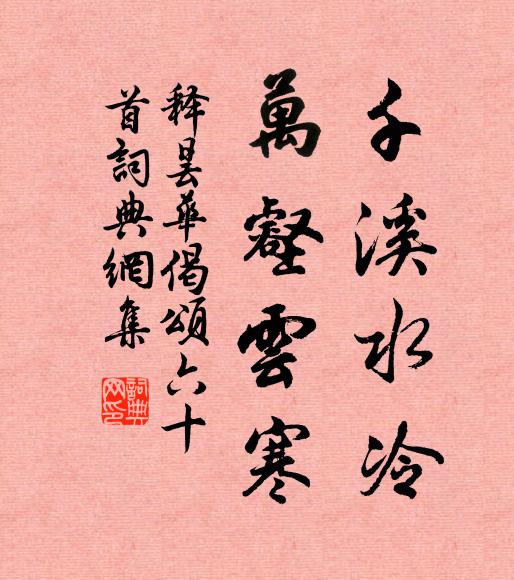 千溪水冷
萬壑雲寒
釋曇華偈頌六十
首詞典網集
詞典
网印